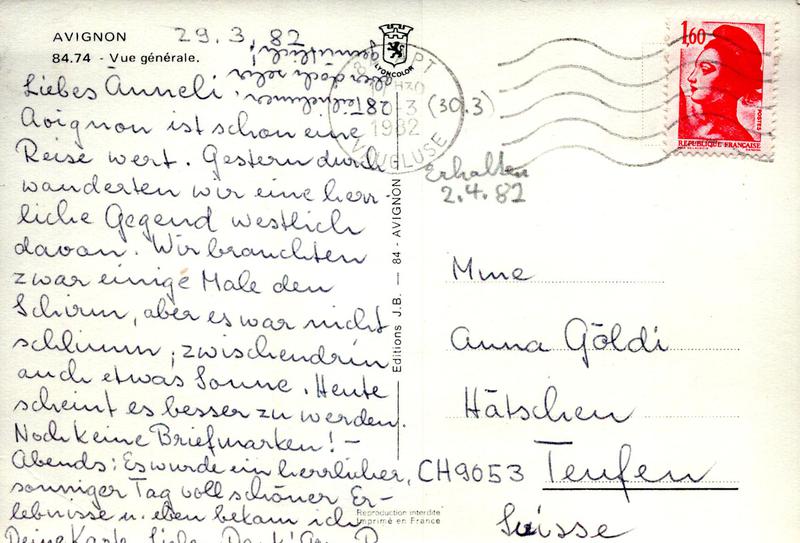 AVIGNON
84.74 - Vue générale.
29.3.82
Liebes Anneli,
Avignon ist schon eine
Reise wert. Gestern durch
wanderten wir eine herr-
liche Gegend westlich
davon. Wir brauchten
zwar einige Male den
Schirm, aber es war nicht
schlimm, zwischendrin
auch etwas Sonne. Heute
scheint es besser zu werden.
Noch keine Briefmarken! –
Abends: Es wurde ein herrlicher,
sonniger Tag voll schöner Er-
lebnisse u. eben bekam ich
Deine Karte. Liebe
28 Teilnehmer,
aber doch sehr
gemütlich!
LYONCOLOR
84 - AVIGNON
PT
30
3
1982
VAUCLUSE
(30.3)
Erhalten
2.4.82
1,60
POSTES
REPUBLIQUE FRANÇAISE
Editions J.B. — 84 - AVIGNON
Mme
Anna Göldi
Hätschen
CH9053 Teufen
Suisse
Reproduction interdite
Imprimé en France